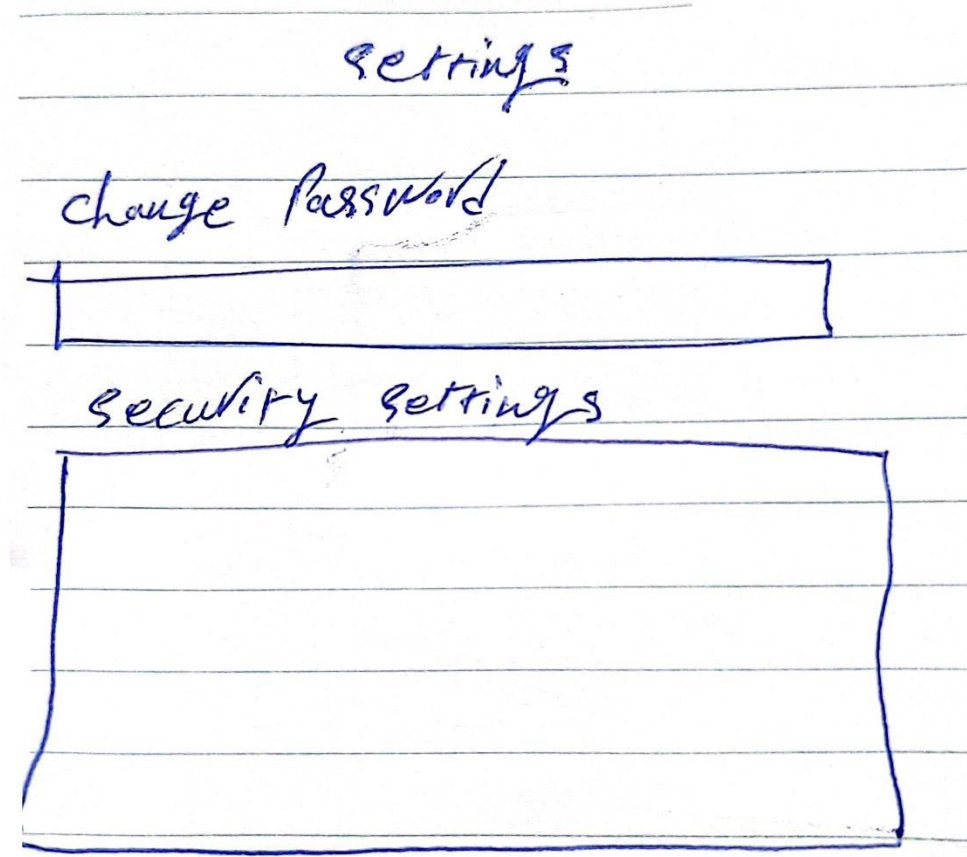 settings
change Password
security settings